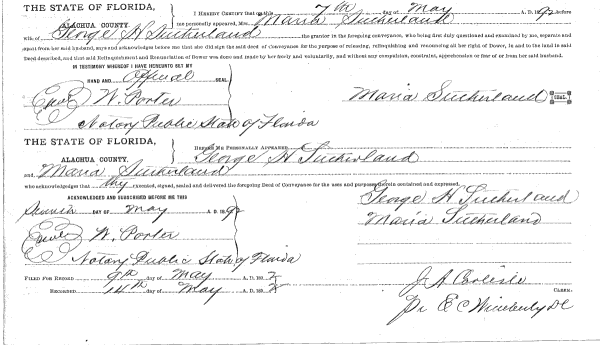 THE STATE OF FLORIDA, I HEREBY CERTIFY that on this 7th day of May A. D. 1892 before
ALACHUA COUNTY. me personally appeared, Mrs. Maria Sutherland
wife of George H Sutherland the grantor in the foregoing conveyance, who being first duly questioned and examined by me, separate and
apart from her said husband, says and acknowledges before me that she did sign the said deed of Conveyance for the purpose of releasing, relinquishing and renouncing all her right of Dower, in and to the land in said
Deed described, and that said Relinquishment and Renunciation of Dower was done and made by her freely and voluntarily, and without any compulsion, constraint, apprehension or fear of or from her said husband.
IN TESTIMONY WHEREOF I HAVE HEREUNTO SET MY
HAND AND Official SEAL.
W. Porter Maria Sutherland SEAL.
Notary Public State of Florida
THE STATE OF FLORIDA,
ALACHUA COUNTY. BEFORE ME PERSONALLY APPEARED George H Sutherland
and Maria Sutherland
who acknowledges that they executed, signed, sealed and delivered the foregoing Deed of Conveyance for the uses and purposes therein contained and expressed.
ACKNOWLEDGED AND SUBSCRIBED BEFORE ME THIS George H Sutherland
Seventh DAY OF May A. D. 1892 Maria Sutherland
W. Porter
Notary Public State of Florida
FILED FOR RECORD 9th day of May A. D. 1892 J A Carlisle
RECORDED 14th day of May A. D. 1892 CLERK.
Pr E C Wimberly DC